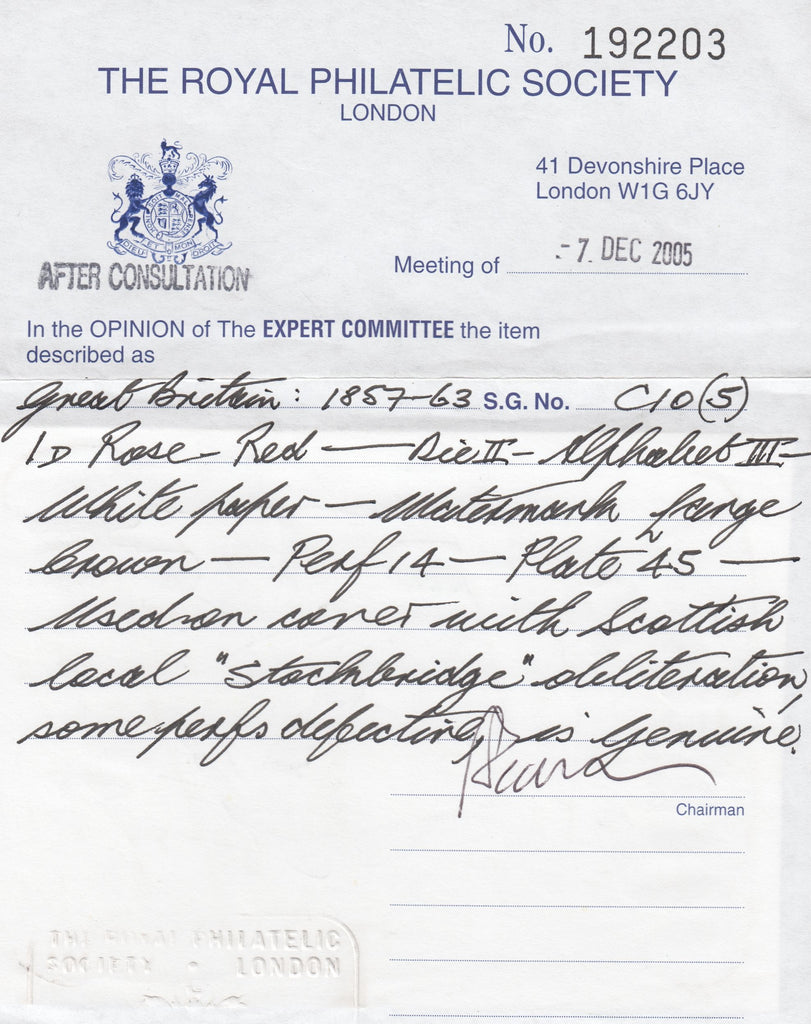 No. 192203
THE ROYAL PHILATELIC SOCIETY
LONDON
41 Devonshire Place
London W1G 6JY
DIEU ET MON DROIT
AFTER CONSULTATION
Meeting of - 7. DEC 2005
In the OPINION of The EXPERT COMMITTEE the item
described as
Great Britain: 1857-63 S.G. No. C10(5)
1D Rose-Red — Die II — Alphabet III —
White paper — Watermark large
crown — Perf 14 — Plate 45 —
Used on cover with Scottish
local "Stockbridge" obliteration,
some perfs defective, is genuine.
Chairman
THE ROYAL PHILATELIC
SOCIETY • LONDON